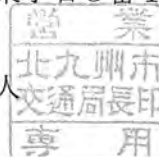 営業
北九州市
人
交通局長印
専用